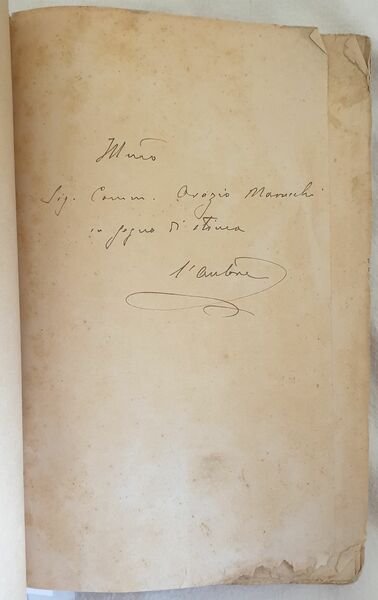 Illmo
Sig. Comm. Orazio Marucchi
in segno di stima
l'autore